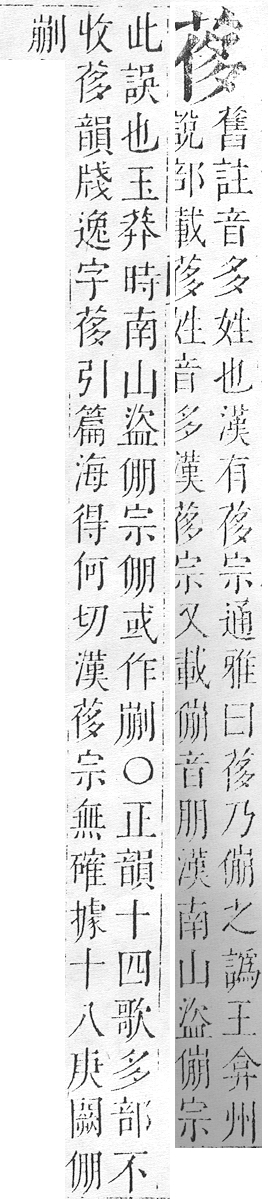 舊註音多姓也漢有宗通雅曰乃傰之譌王弇州
說部載姓音多漢宗又載傰音朋漢南山盜傰宗
此誤也玉莽時南山盜倗宗倗或作剻○正韻十四歌多部不
收韻牋逸字引篇海得何切漢宗無確據十八庚闕倗
剻